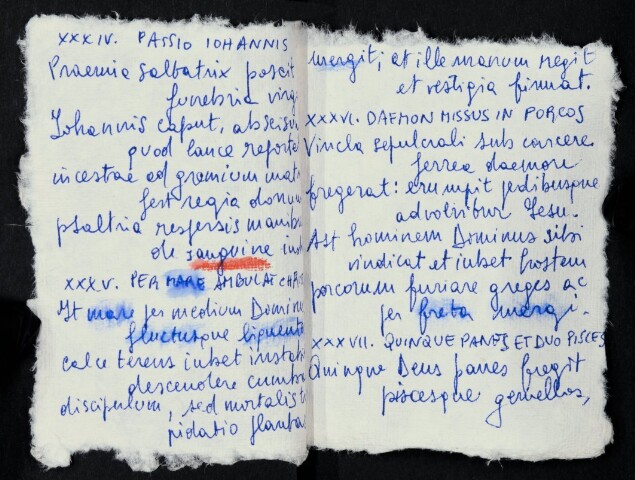 XXXIV. PASSIO IOHANNIS
Praemia saltatrix poscit
funebria virg
Iohannis caput, abscisu
quod lance reporte
incestae ad gremium mat
fert regia donum
psaltria respersis manibu
de sanguine iust
XXXV. PER MARE AMBULAT CHRIS
It mare per medium Domine
fluctusque liquent
calce terens iubet instab
descendere cumba
discipulum, sed mortalis t
pidatio planta
mergit; at ille manum regit
et vestigia firmat.
XXXVI. DAEMON MISSUS IN PORCOS
Vincla sepulcrali sub carcere
ferrea daemon
fregerat: erumpit pedibusque
advolvitur Iesu.
Ast hominem Dominus sibi
vindicat et iubet hostem
porcorum furiare greges ac
per freta mergi.
XXXVII. QUINQUE PANES ET DUO PISCES
Quinque Deus panes fregit
piscesque gemellos,